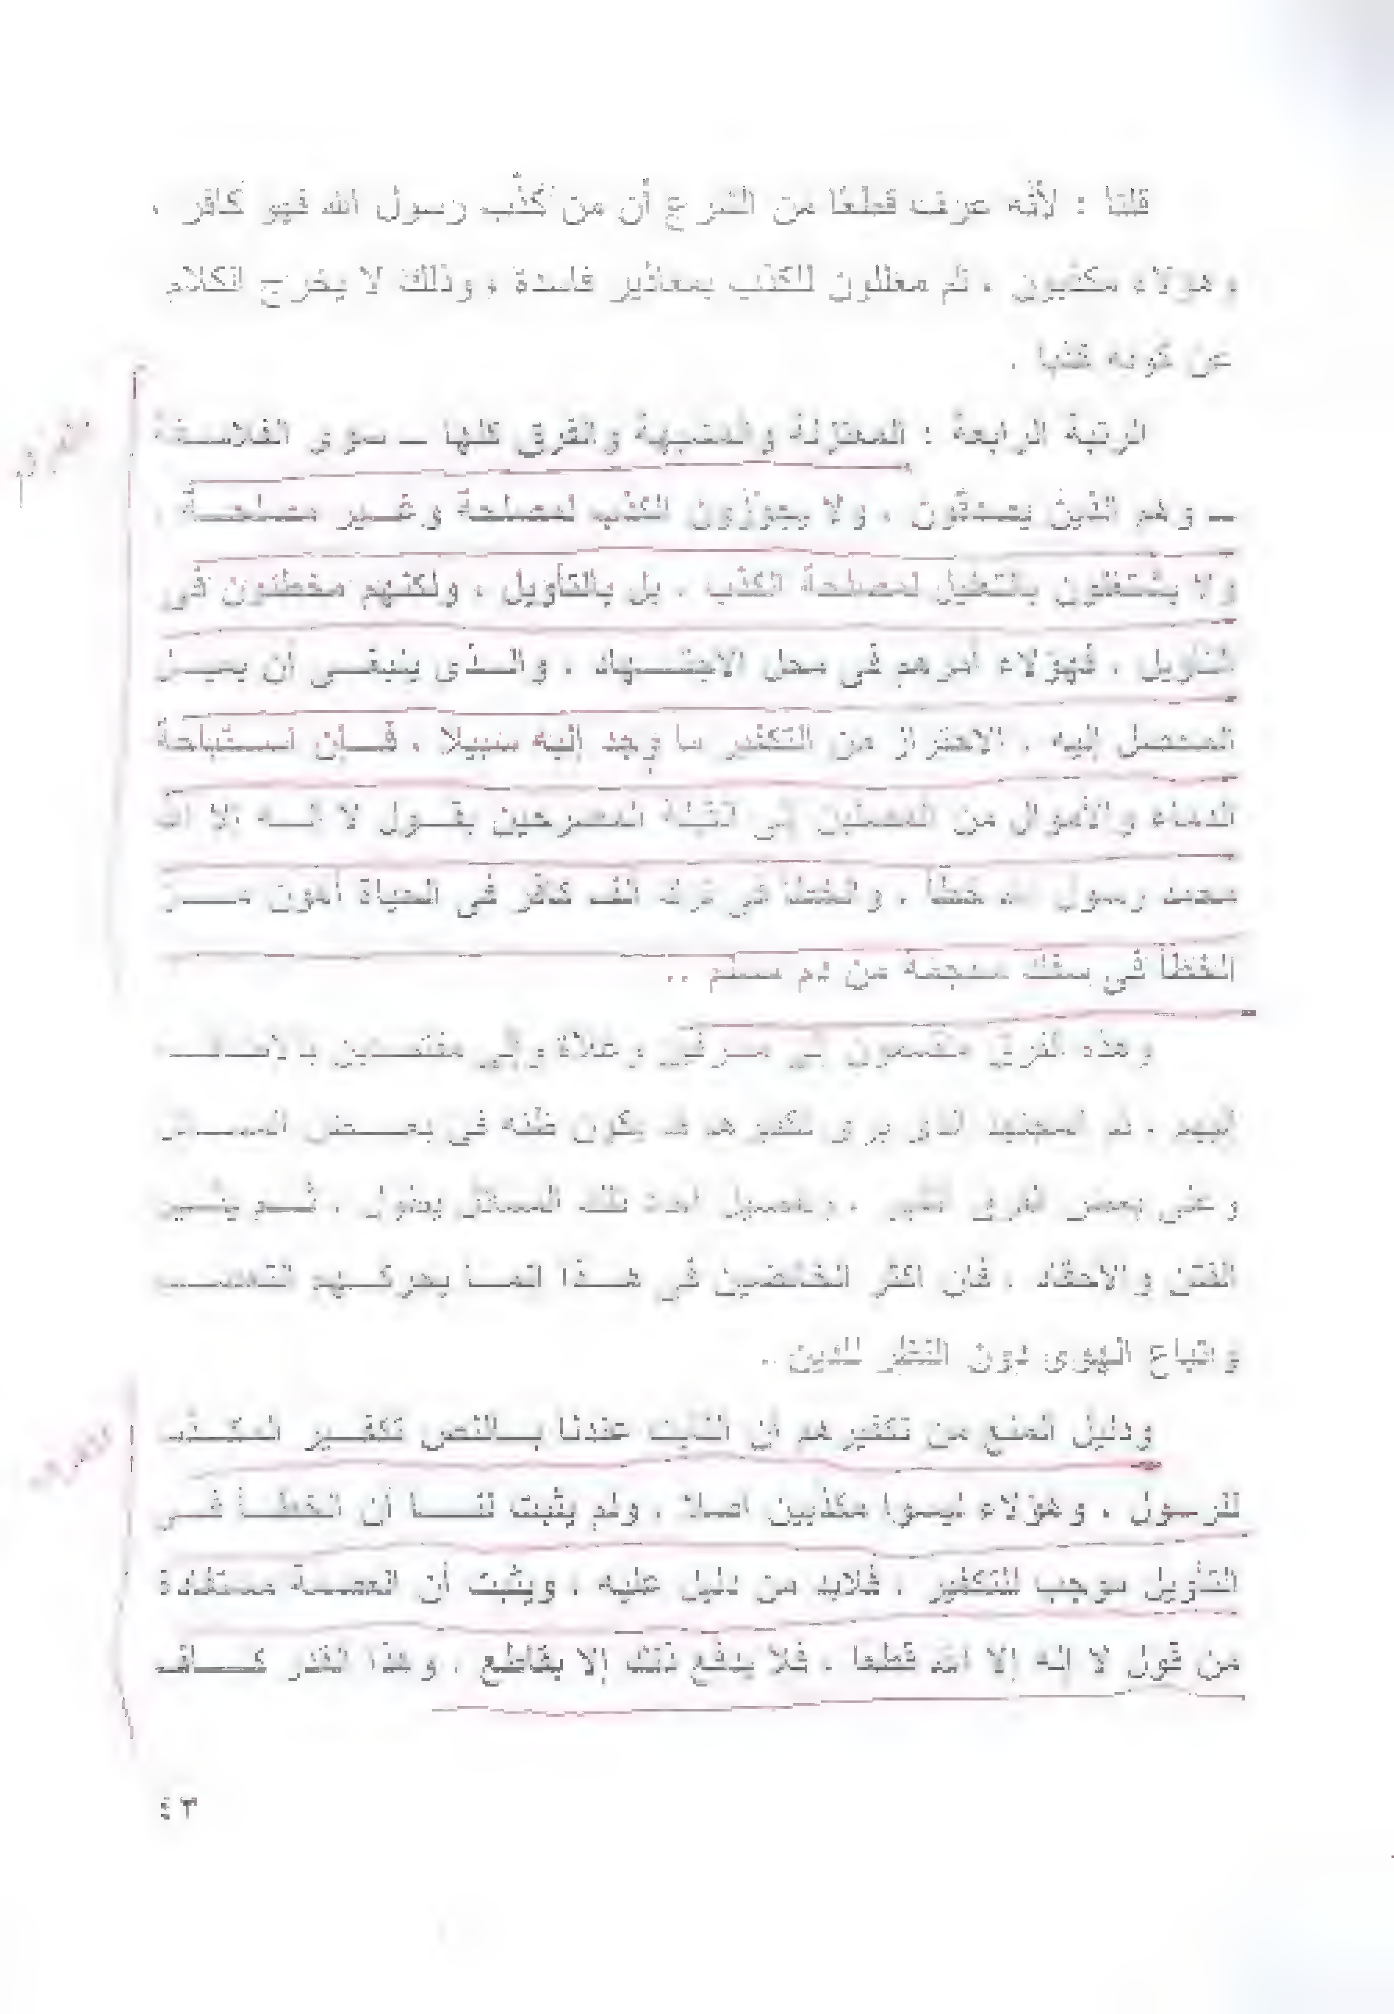 قلنا : لأنه عرف قطعًا من الشرع أن من كذّب رسول الله فهو كافر ،
وهؤلاء مكذبون ، ثم معللون للكذب بمعاذير فاسدة ، وذلك لا يخرج الكلام
عن كونه كذبا .
الرتبة الرابعة : المعتزلة والمشبهة والفرق كلها ـ سوى الفلاسفة
ـ وهم الذين يصدقون ، ولا يجوّزون الكذب لمصلحة وغير مصلحة ،
ولا يشتغلون بالتعليل لمصلحة الكذب ، بل بالتأويل ، ولكنهم مخطئون فى
التأويل ، فهؤلاء أمرهم فى محل الاجتهاد ، والذى ينبغى أن يميل
المحصل إليه ، الاحتراز من التكفير ما وجد إليه سبيلا ، فإن استباحة
الدماء والأموال من المصلين إلى القبلة المصرحين بقول لا اله الا الله
محمد رسول الله خطأ ، والخطأ فى ترك ألف كافر فى الحياة أهون من
الخطأ فى سفك محجمة من دم مسلم ..
وهذه الفرق منقسمون إلى مسرفين وغلاة وإلى مقتصدين بالإضافة
إليهم ، ثم المجتهد الذى يرى تكفيرهم قد يكون ظنه فى بعض المسائل
وعلى بعض الفرق أظهر ، وتفصيل آحاد تلك المسائل يطول ، ثم يثير
الفتن والاحقاد ، فان اكثر الخائضين فى هذا انما يحركهم التعصب
واتباع الهوى دون النظر للدين ..
ودليل المنع من تكفيرهم أن الثابت عندنا بالنص تكفير المكذب
للرسول ، وهؤلاء ليسوا مكذبين اصلا ، ولم يثبت لنا أن الخطأ فى
التأويل موجب للتكفير ، فلابد من دليل عليه ، ويثبت أن العصمة مستفادة
من قول لا اله إلا الله قطعا ، فلا يدفع ذلك إلا بقاطع ، وهذا القدر كاف
٤٣